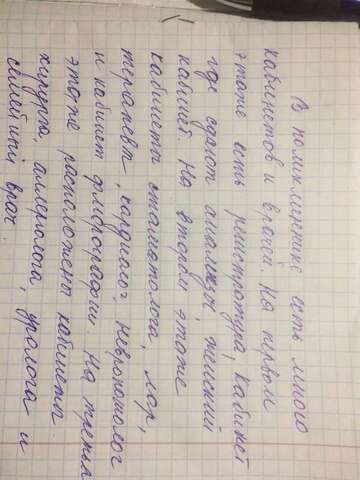 В поликлинике есть много
кабинетов и врачей. На первом
этаже есть регистратура, кабинет
где сдают анализы, женский
кабинет. На втором этаже
кабинеты стоматолога, лор,
терапевт, кардиолог невропатолог
и кабинет флюрографии. На третьем
этаже расположены кабинеты
хирурга, аллерголога, уролога и
семейный врач.